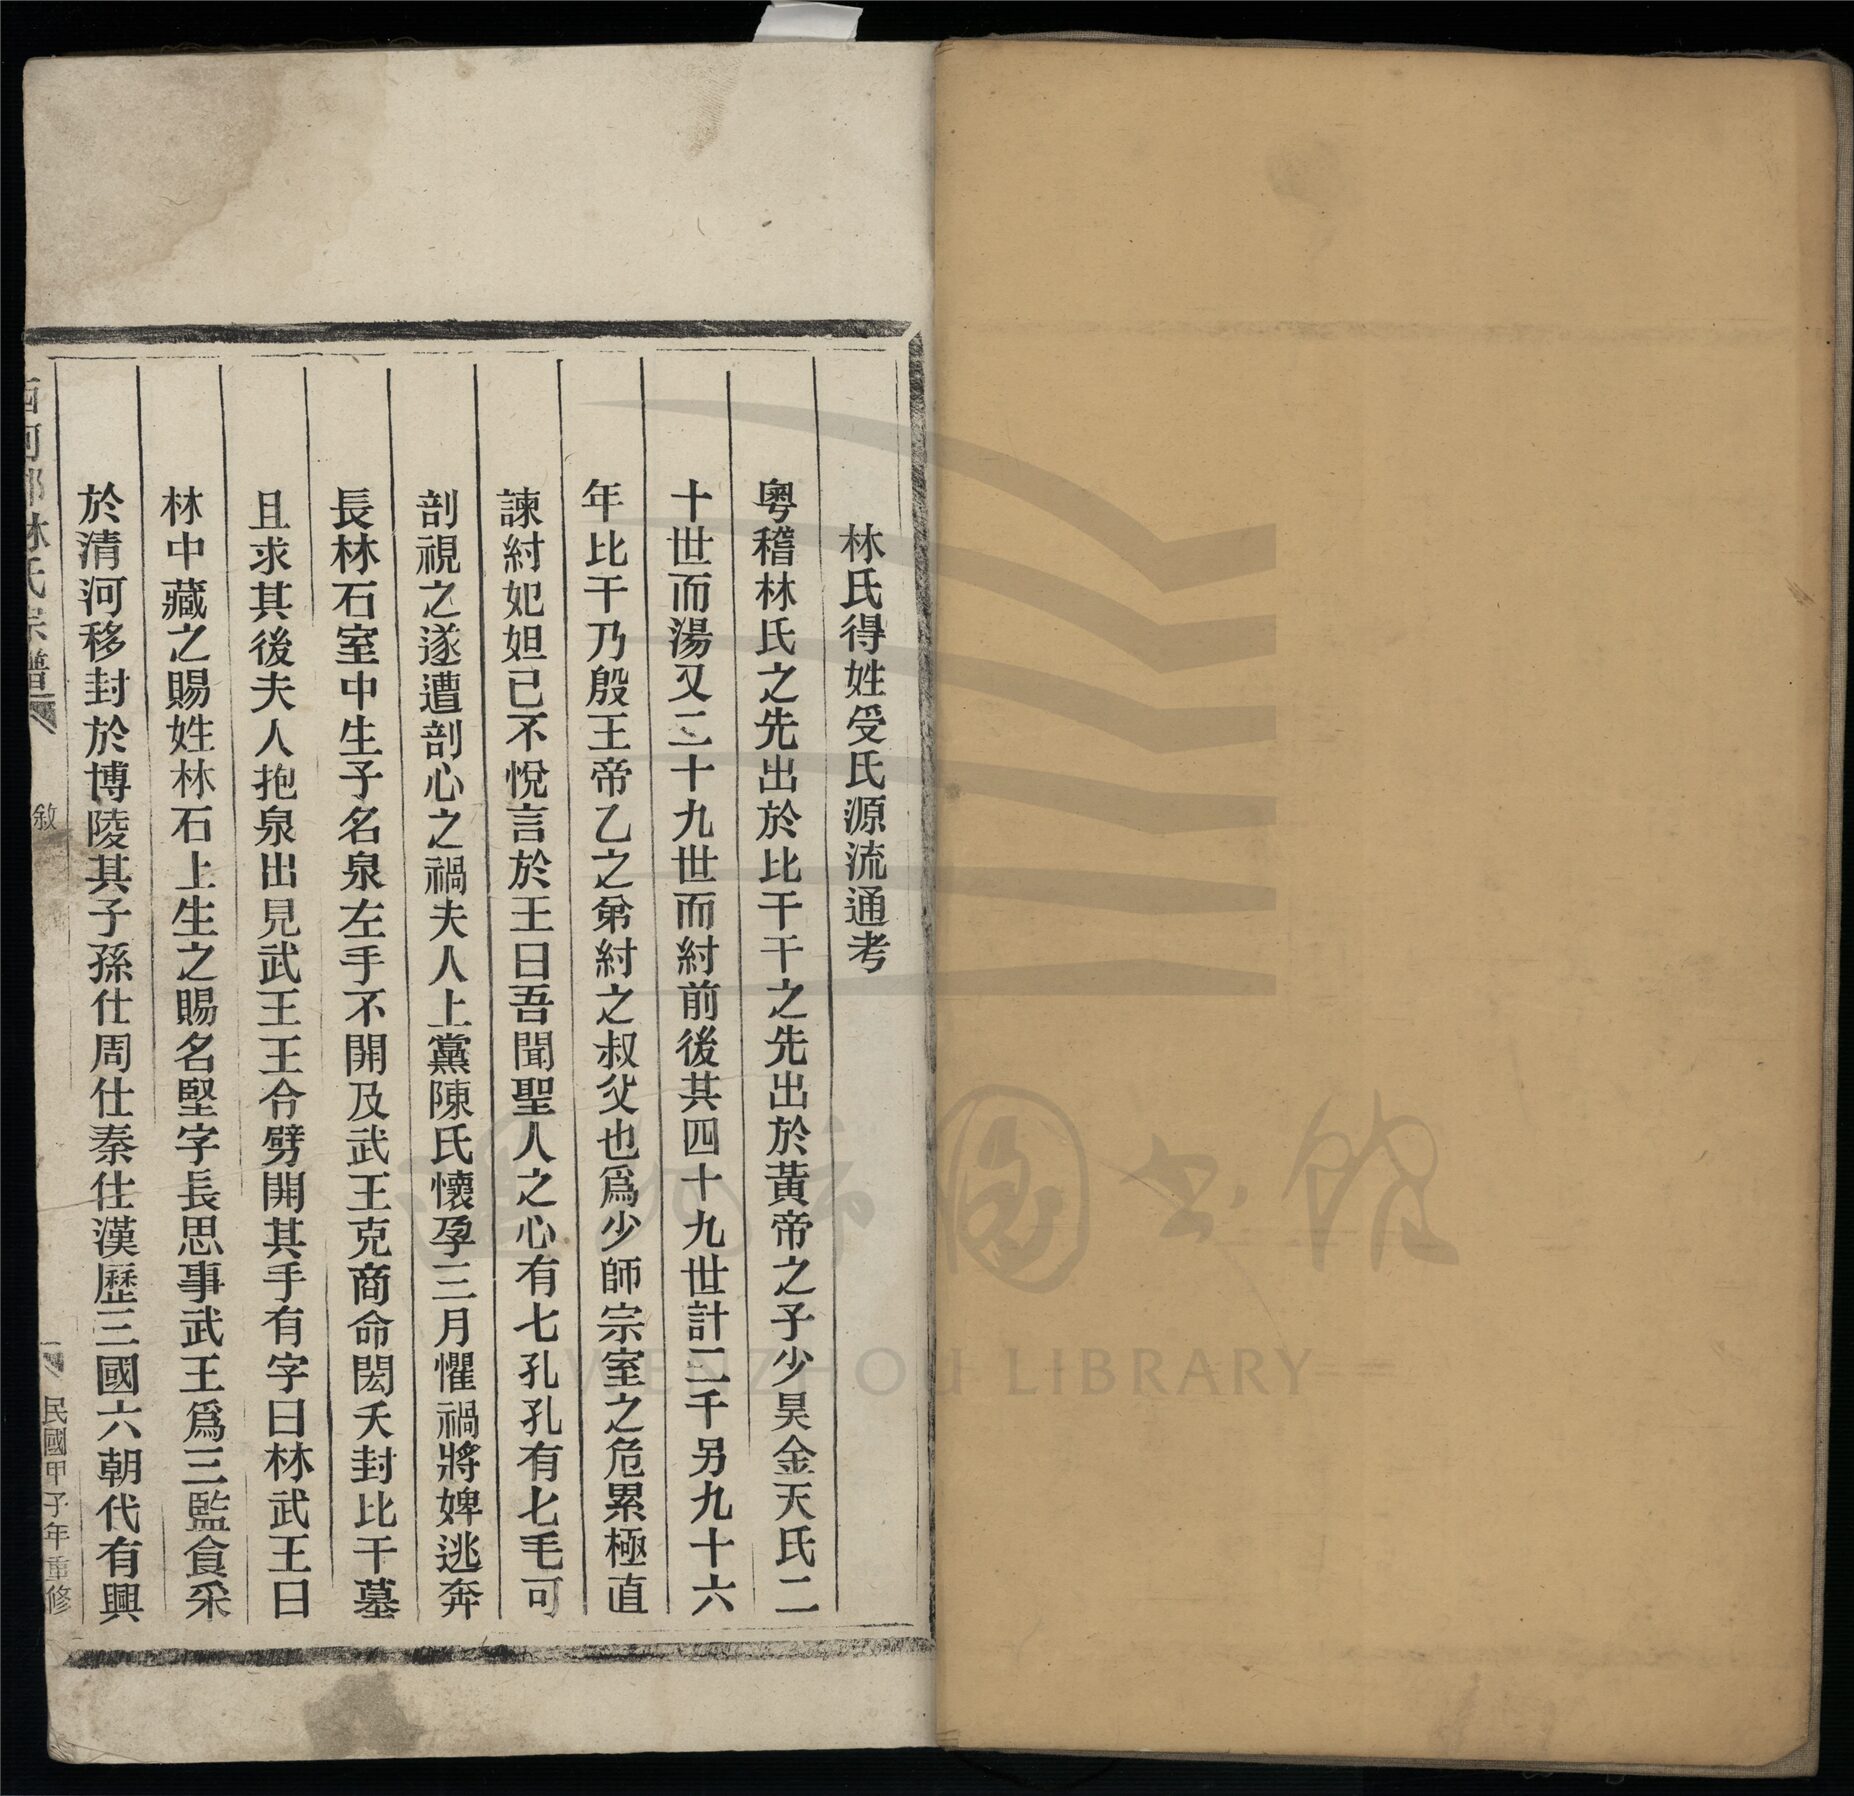 林氏得姓受氏源流通考
粵稽林氏之先出於比干干之先出於黃帝之子少昊金天氏二
十世而湯又二十九世而紂前後其四十九世計二千另九十六
年比干乃殷王帝乙之弟紂之叔父也爲少師宗室之危累極直
諫紂妃妲已不悅言於王曰吾聞聖人之心有七孔孔有七毛可
剖視之遂遭剖心之禍夫人上黨陳氏懷孕三月懼禍將婢逃奔
長林石室中生子名泉左手不開及武王克商命閎夭封比干墓
且求其後夫人抱泉出見武王王令劈開其手有字曰林武王曰
林中藏之賜姓林石上生之賜名堅字長思事武王爲三監食采
於清河移封於博陵其子孫仕周仕秦仕漢歷三國六朝代有興
西河郡林氏宗譜 敘 一 民國甲子年重修
圖书館
WENZHOU LIBRARY